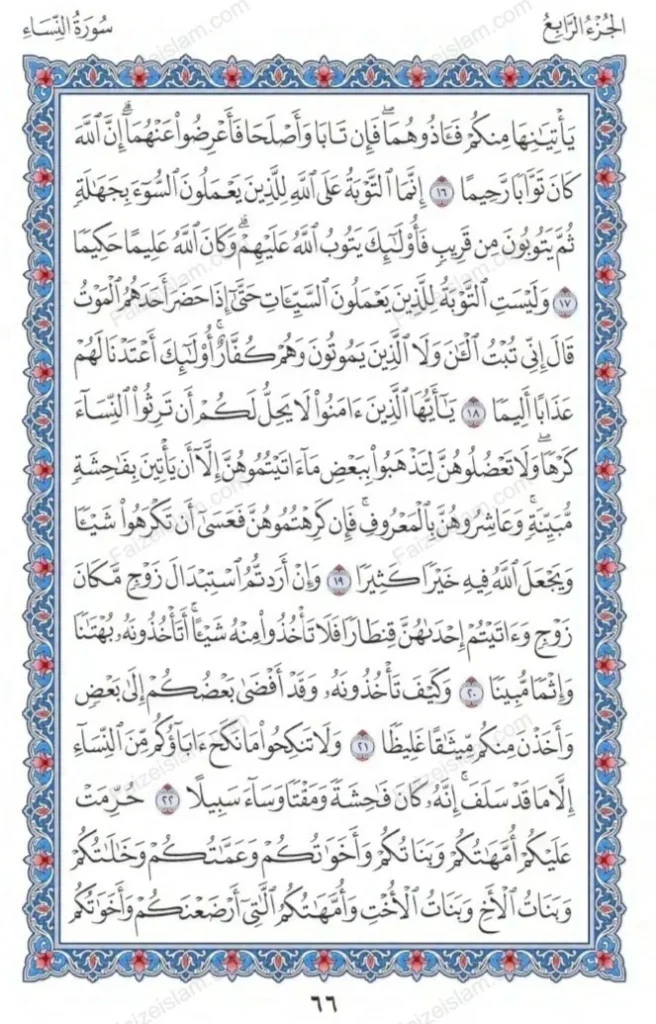 الجُزْءُ الرَّابِعُ
سُورَةُ النِّسَاءِ
يَأْتِيَٰنِهَا مِنكُمْ فَـَٔاذُوهُمَاۖ فَإِن تَابَا وَأَصْلَحَا فَأَعْرِضُوا۟ عَنْهُمَآۗ إِنَّ ٱللَّهَ
كَانَ تَوَّابًا رَّحِيمًا ١٦ إِنَّمَا ٱلتَّوْبَةُ عَلَى ٱللَّهِ لِلَّذِينَ يَعْمَلُونَ ٱلسُّوٓءَ بِجَهَٰلَةٍ
ثُمَّ يَتُوبُونَ مِن قَرِيبٍ فَأُو۟لَٰٓئِكَ يَتُوبُ ٱللَّهُ عَلَيْهِمْۗ وَكَانَ ٱللَّهُ عَلِيمًا حَكِيمًا
١٧ وَلَيْسَتِ ٱلتَّوْبَةُ لِلَّذِينَ يَعْمَلُونَ ٱلسَّيِّـَٔاتِ حَتَّىٰٓ إِذَا حَضَرَ أَحَدَهُمُ ٱلْمَوْتُ
قَالَ إِنِّى تُبْتُ ٱلْـَٰٔنَ وَلَا ٱلَّذِينَ يَمُوتُونَ وَهُمْ كُفَّارٌۚ أُو۟لَٰٓئِكَ أَعْتَدْنَا لَهُمْ
عَذَابًا أَلِيمًا ١٨ يَٰٓأَيُّهَا ٱلَّذِينَ ءَامَنُوا۟ لَا يَحِلُّ لَكُمْ أَن تَرِثُوا۟ ٱلنِّسَآءَ
كَرْهًاۖ وَلَا تَعْضُلُوهُنَّ لِتَذْهَبُوا۟ بِبَعْضِ مَآ ءَاتَيْتُمُوهُنَّ إِلَّآ أَن يَأْتِينَ بِفَٰحِشَةٍ
مُّبَيِّنَةٍۚ وَعَاشِرُوهُنَّ بِٱلْمَعْرُوفِۚ فَإِن كَرِهْتُمُوهُنَّ فَعَسَىٰٓ أَن تَكْرَهُوا۟ شَيْـًٔا
وَيَجْعَلَ ٱللَّهُ فِيهِ خَيْرًا كَثِيرًا ١٩ وَإِنْ أَرَدتُّمُ ٱسْتِبْدَالَ زَوْجٍ مَّكَانَ
زَوْجٍ وَءَاتَيْتُمْ إِحْدَىٰهُنَّ قِنطَارًا فَلَا تَأْخُذُوا۟ مِنْهُ شَيْـًٔاۚ أَتَأْخُذُونَهُۥ بُهْتَٰنًا
وَإِثْمًا مُّبِينًا ٢٠ وَكَيْفَ تَأْخُذُونَهُۥ وَقَدْ أَفْضَىٰ بَعْضُكُمْ إِلَىٰ بَعْضٍ
وَأَخَذْنَ مِنكُم مِّيثَٰقًا غَلِيظًا ٢١ وَلَا تَنكِحُوا۟ مَا نَكَحَ ءَابَآؤُكُم مِّنَ ٱلنِّسَآءِ
إِلَّا مَا قَدْ سَلَفَۚ إِنَّهُۥ كَانَ فَٰحِشَةً وَمَقْتًا وَسَآءَ سَبِيلًا ٢٢ حُرِّمَتْ
عَلَيْكُمْ أُمَّهَٰتُكُمْ وَبَنَاتُكُمْ وَأَخَوَٰتُكُمْ وَعَمَّٰتُكُمْ وَخَٰلَٰتُكُمْ
وَبَنَاتُ ٱلْأَخِ وَبَنَاتُ ٱلْأُخْتِ وَأُمَّهَٰتُكُمُ ٱلَّٰتِىٓ أَرْضَعْنَكُمْ وَأَخَوَٰتُكُم
٦٦
Faizeislam.com